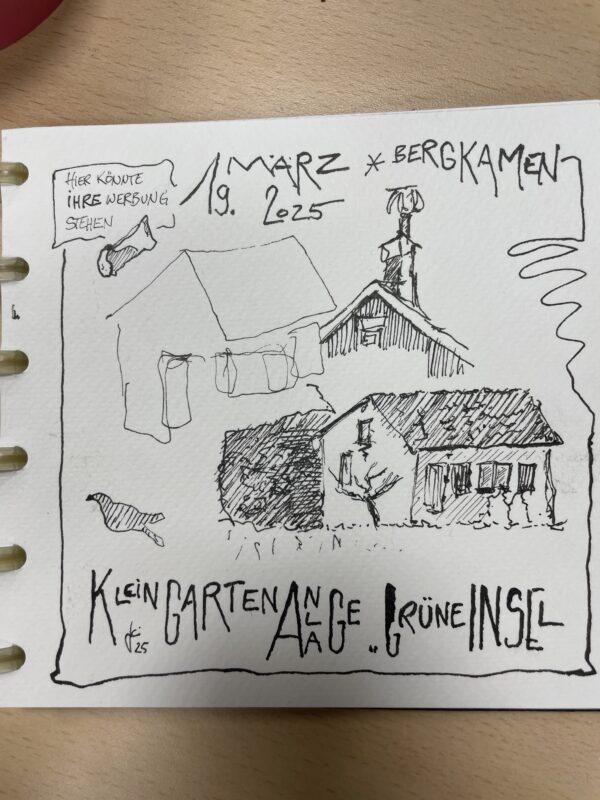 HIER KÖNNTE
IHRE WERBUNG
STEHEN
19. MÄRZ * BERGKAMEN
2025
KLEINGARTENANLAGE „GRÜNE INSEL
25